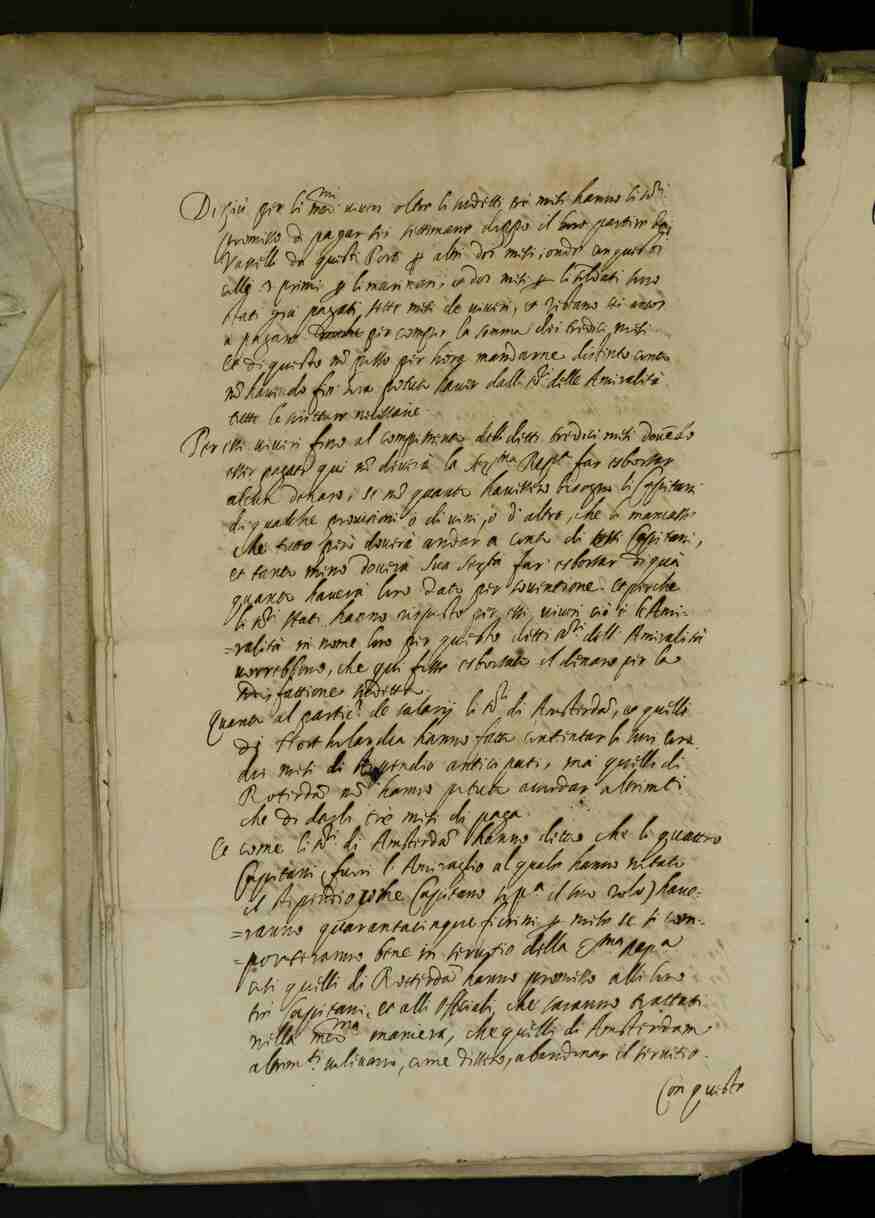 Di più per li med.mi viveri oltre li sudetti tre mesi hanno li S.ri
promesso di pagar sei settimane doppo il loro partire dei
Vasselli da questi Porti per altri doi mesi, onde
alli 3 primi per li marinari, et doi mesi per li soldati sono
stati già pagati, sette mesi de viveri, et restano sei ancor
a pagare per compir la somma dei tredici mesi.
et di questo nõ posso per hora mandarne distinto conto
nõ havendo fin hora potuto haver dalli S.ri delle Amiralità
tutte le scritture necessarie.
Per essi viveri fino al compimento delli detti tredici mesi dovẽdo
esser pagati qui nõ doverà la Ser.ma Rep.ca far esborsar
alcun denaro, se nõ quanto havessero bisogno li Capitani
di qualche provisioni ò di vini, ò d'altro, che li mancasse
che tutto però doverà andar a conto di essi Capitani,
et tanto meno doverà Sua Ser.tà far esborsar di più
quanto haverà loro dato per sovventione. et perche
li S.ri Stati hanno risposto per essi viveri cioè le Ami-
=ralità in nome loro per questo detti S.ri dell'Amiralità
vorrebbono, che qui fosse esborsato il denaro per la
sodisfattione sudetta.
Quanto al partic.r de salarij li S.ri di Amsterdã, et quelli
di Northolandia hanno fatto contentar li suoi con
doi mesi di stipendio anticipati, ma quelli di
Roterdã nõ hanno potuto accordar altrim.ti
che di dargli tre mesi di paga.
Et come li S.ri di Amsterdã hanno detto che li quattro
Capitani (fuori l'Amiraglio al quale hanno
il stipendio come Capitano il suo solo) have-
=ranno quarantacinque fiorini per mese se si com-
=porteranno bene in servitio della Ser.ma Rep.ca
così quelli di Rotterdã hanno promesso alli loro
tre Capitani, et alli Officiali, che saranno trattati
nella med.ma maniera, che quelli di Amsterdam
altrim.ti volevano, come dissero, abandonar il servitio.
Con questo